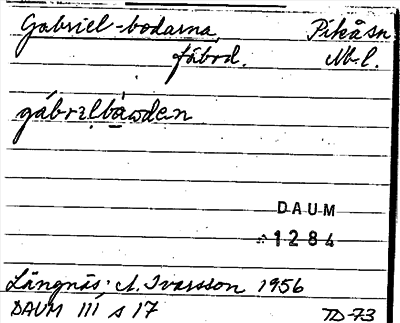 Gabriel-bodarna Pikåsn
fäbod. Nb-l.
gábrɩlbà̩wden
DAUM
1284
Långnäs: A. Ivarsson 1956
DAUM III s 17 TD-73